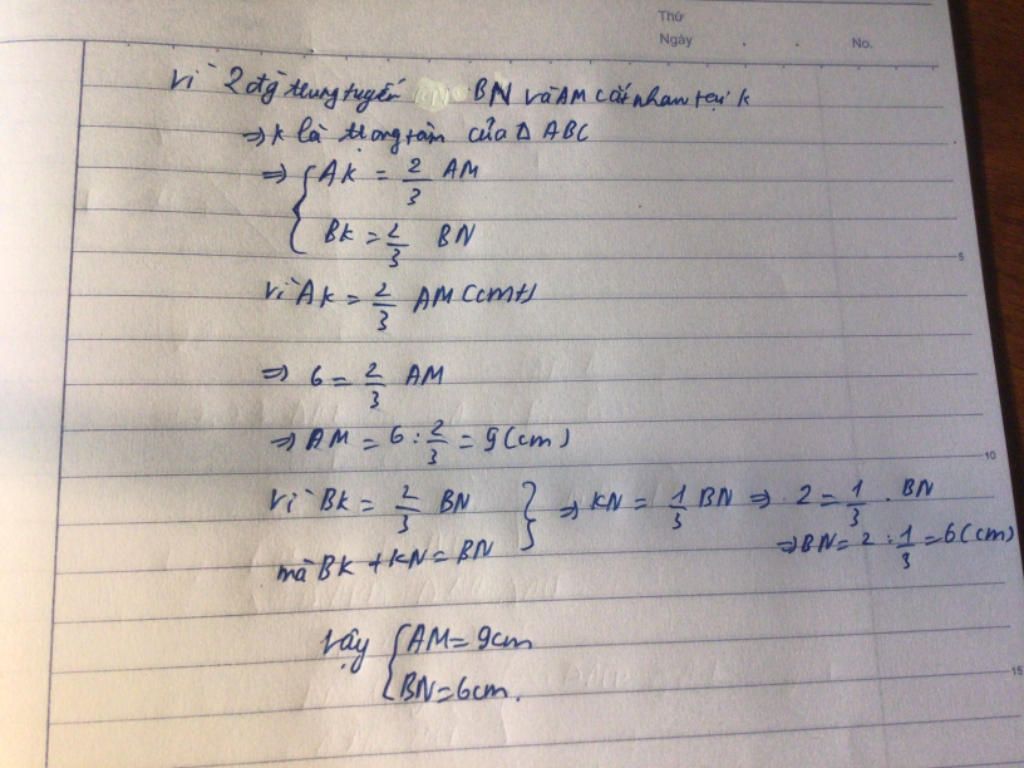 Thứ
Ngày . . No.
Vì 2 đg trung tuyến BN và AM cắt nhau tại K
=> K là trọng tâm của Δ ABC
=> { AK = 2/3 AM
BK = 2/3 BN
Vì AK = 2/3 AM (cmt)
=> 6 = 2/3 AM
=> AM = 6 : 2/3 = 9 (cm)
Vì BK = 2/3 BN } => KN = 1/3 BN => 2 = 1/3 . BN
mà BK + KN = BN => BN = 2 : 1/3 = 6 (cm)
Vậy { AM = 9cm
BN = 6cm.
5
10
15